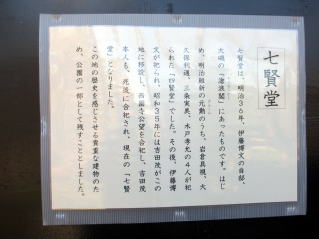 七賢堂
七賢堂は、明治36年、伊藤博文の自邸、
大磯の「滄浪閣」にあったものです。はじ
め、明治維新の元勲のうち、岩倉具視、大
久保利通、三条実美、木戸孝允の4人が祀
られた「四賢堂」でした。その後、伊藤博
文が祀られ、昭和35年には吉田茂がこの
地に移設し、西園寺公望を合祀し、吉田茂
本人も、死後に合祀され、現在の「七賢
堂」となりました。
この地の歴史を感じさせる貴重な建物のた
め、公園の一部として残すこととしました。